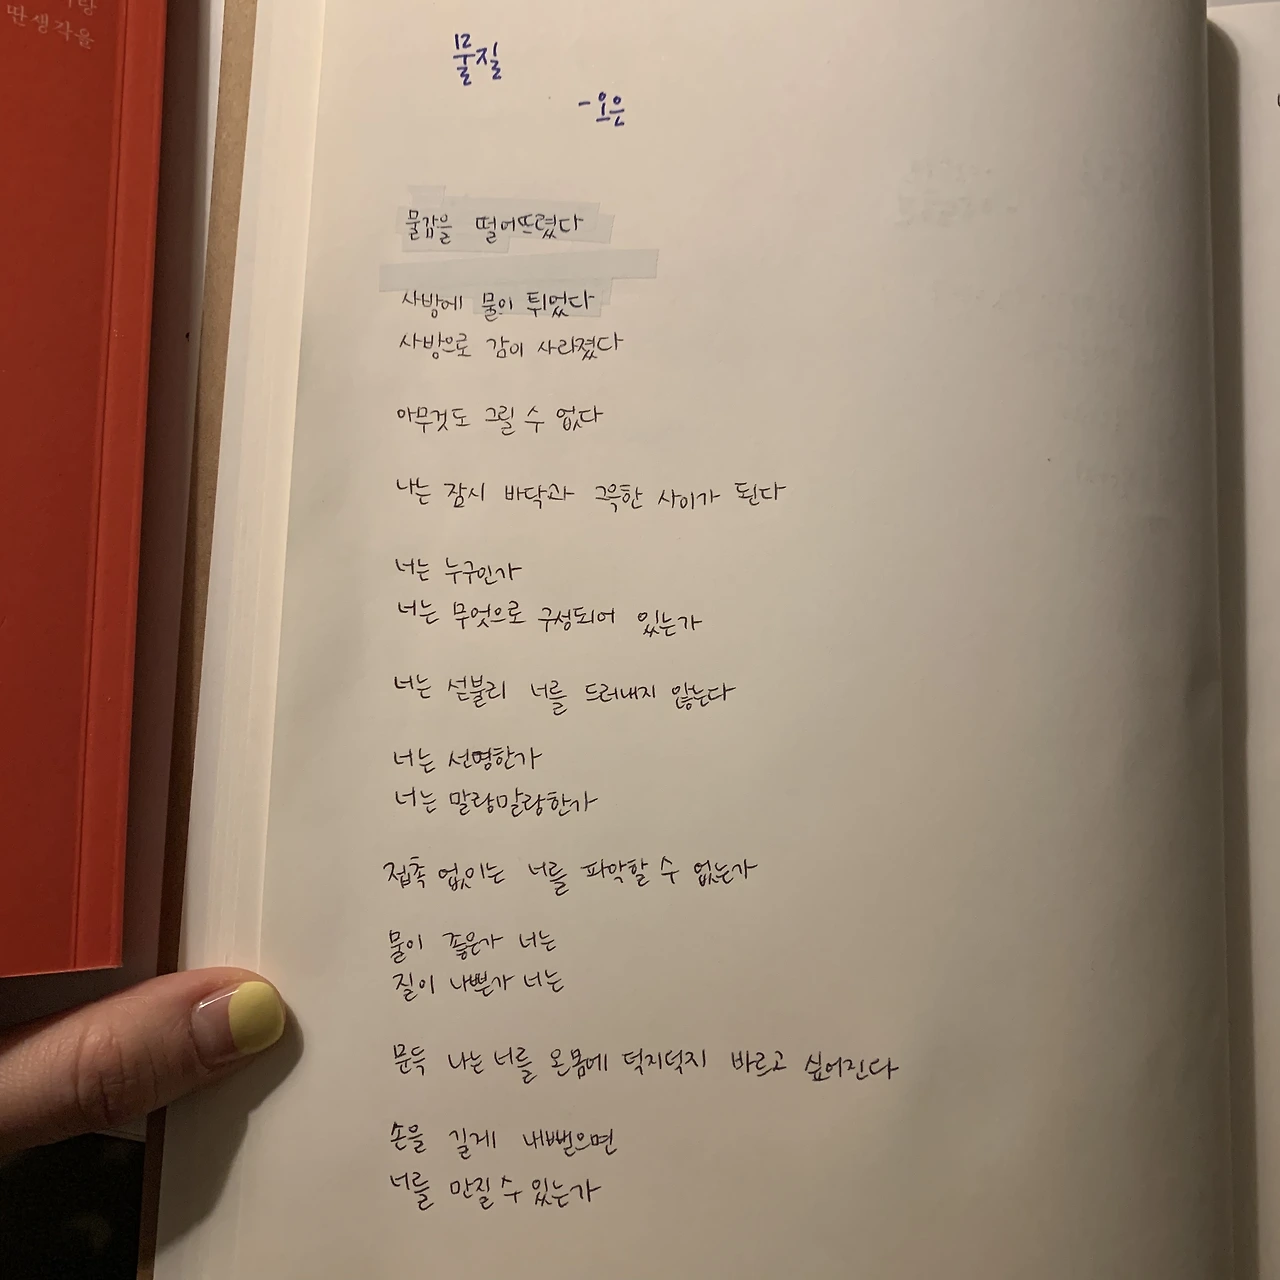 딴생각을
물질
- 오은
물감을 떨어뜨렸다
사방에 물이 튀었다
사방으로 감이 사라졌다
아무것도 그릴 수 없다
나는 잠시 바닥과 그윽한 사이가 된다
너는 누구인가
너는 무엇으로 구성되어 있는가
너는 섣불리 너를 드러내지 않는다
너는 선명한가
너는 말랑말랑한가
접촉 없이는 너를 파악할 수 없는가
물이 좋은가 너는
질이 나쁜가 너는
문득 나는 너를 온몸에 덕지덕지 바르고 싶어진다
손을 길게 내뻗으면
너를 만질 수 있는가